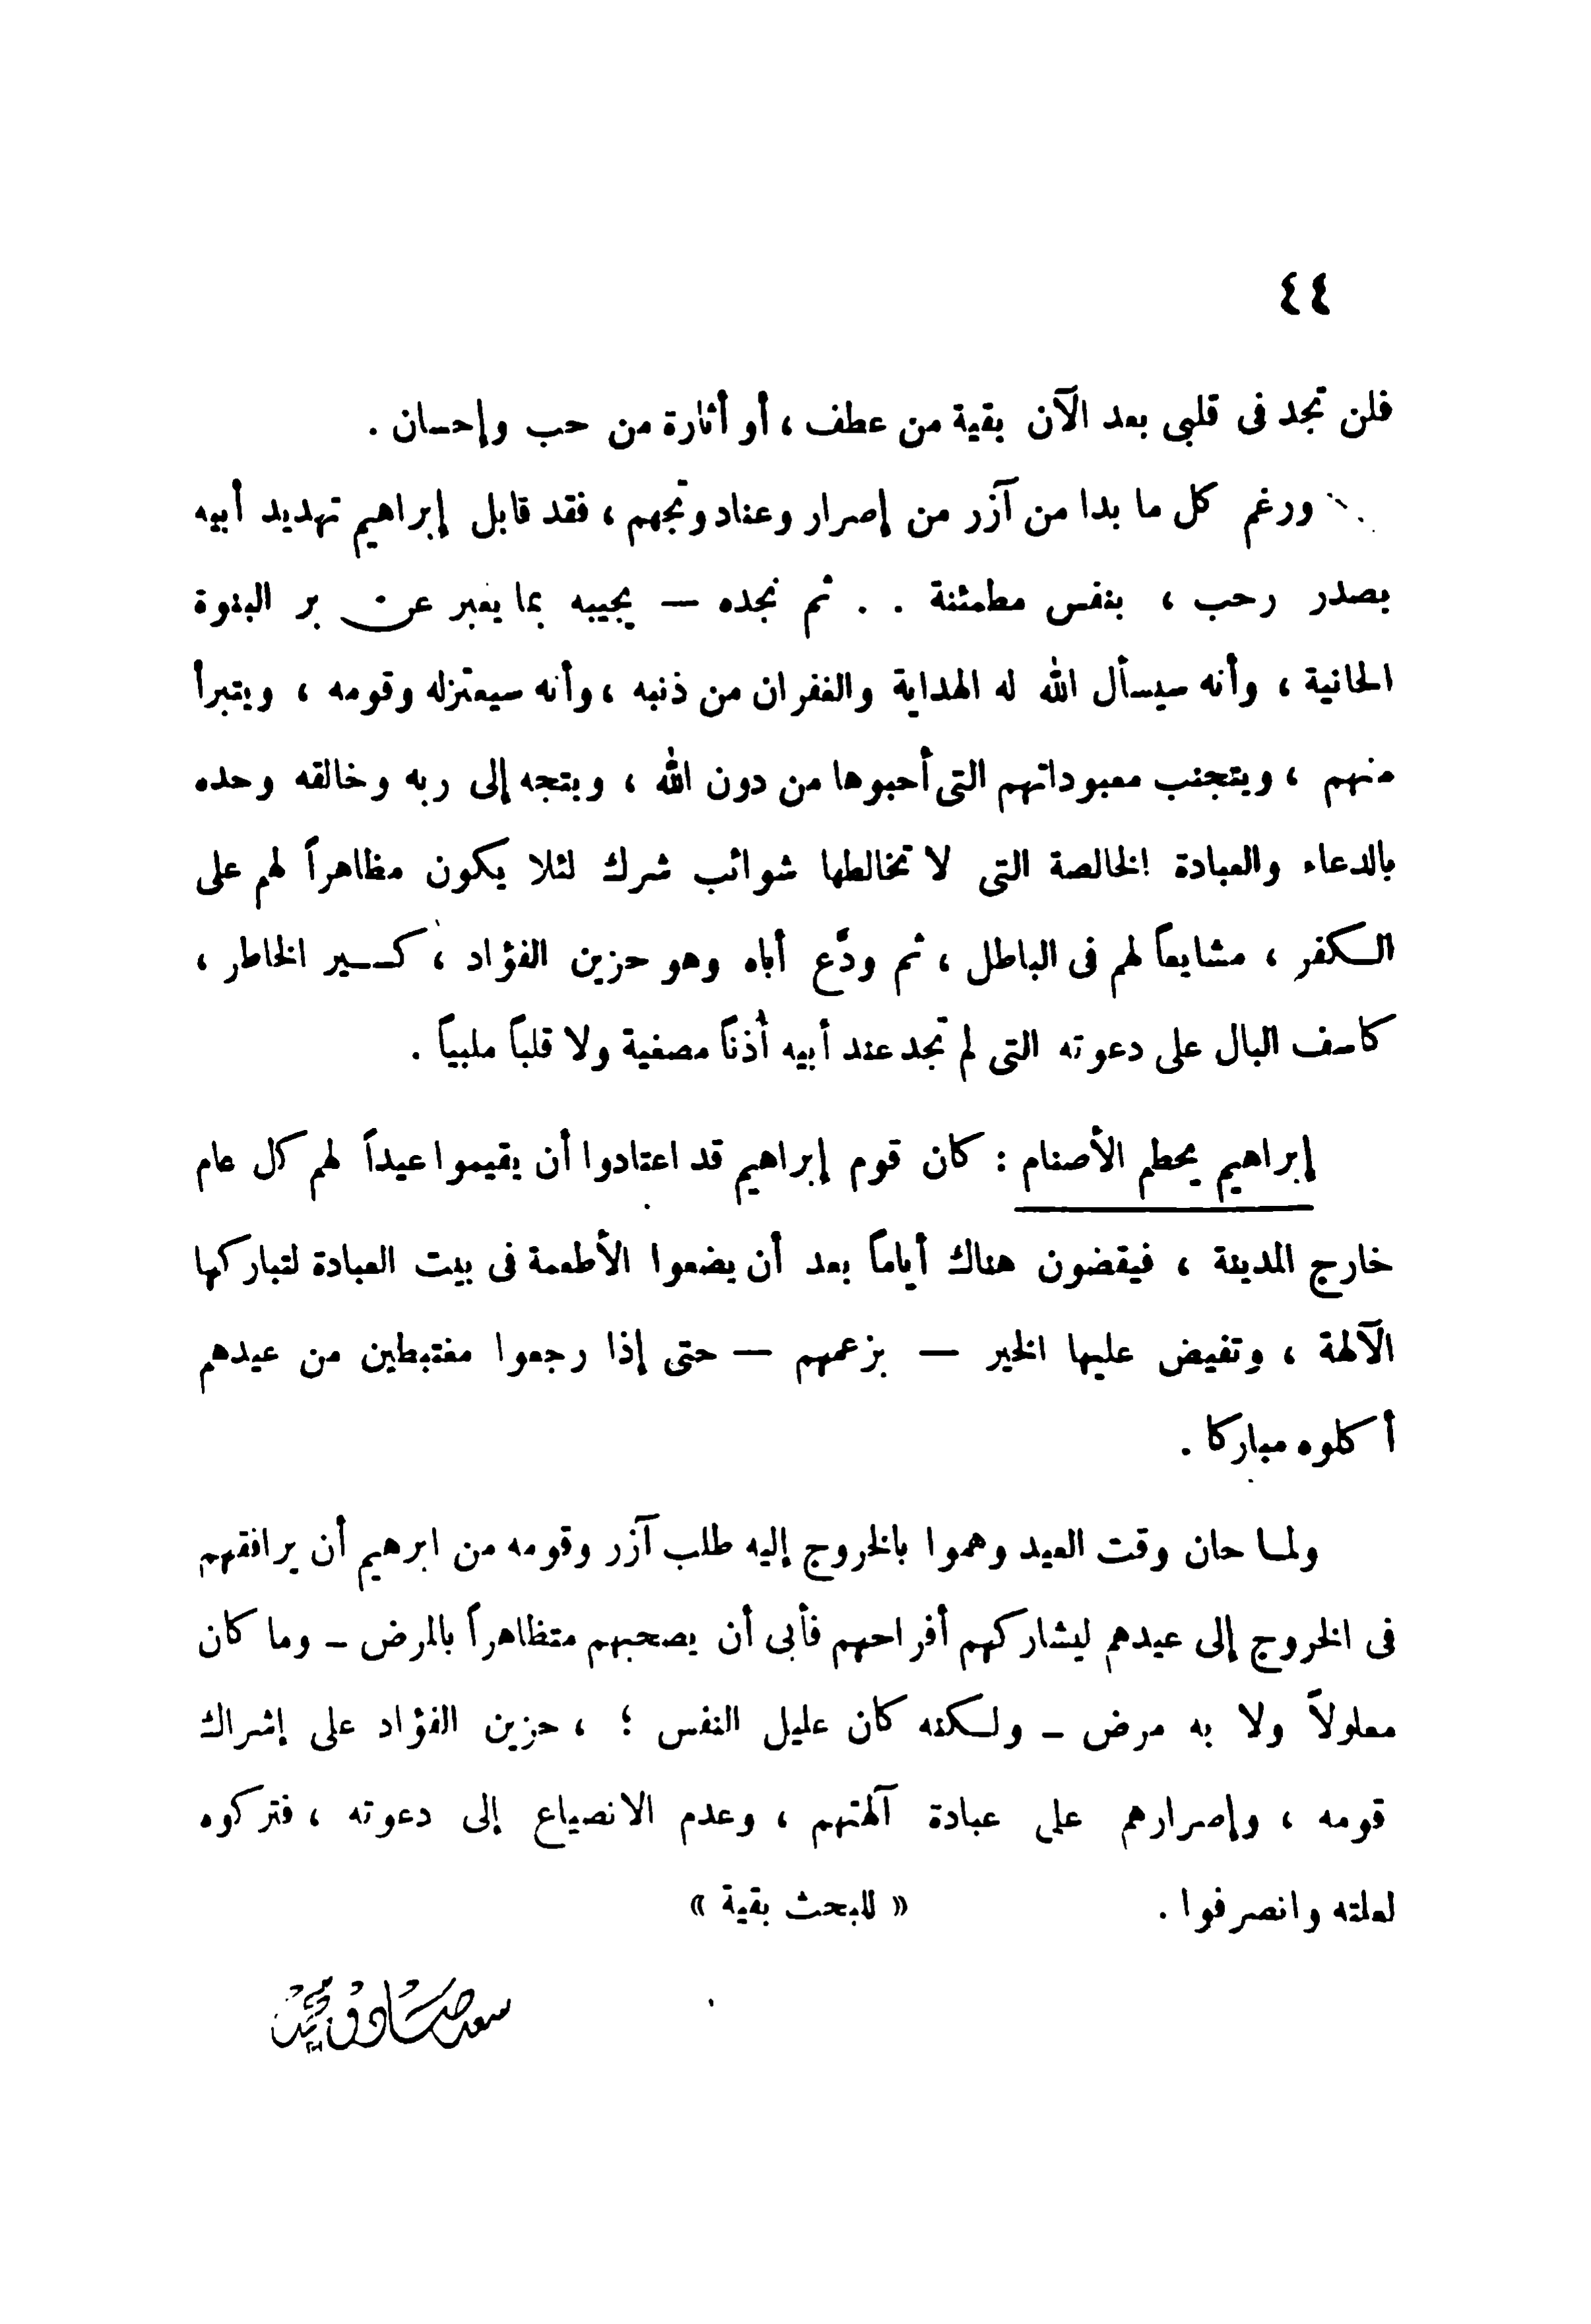 ٤٤
فلن تجد فى قلبى بعد الآن بقية من عطف ، أو أثارة من حب وإحسان .
ورغم كل ما بدا من آزر من إصرار وعناد وتجهم ، فقد قابل إبراهيم تهديد أبيه
بصدر رحب ، بنفس مطمئنة . . ثم نجده — يجيبه بما يعبر عن بر البنوة
الحانية ، وأنه سيسأل الله له الهداية والغفران من ذنبه ، وأنه سيعتزله وقومه ، ويتبرأ
منهم ، ويتجنب معبوداتهم التى أحبوها من دون الله ، ويتجه إلى ربه وخالقه وحده
بالدعاء والعبادة الخالصة التى لا تخالطها شوائب شرك لئلا يكون مظاهراً لهم على
الكفر ، مشايعاً لهم فى الباطل ، ثم ودَّع أباه وهو حزين الفؤاد ، كسير الخاطر ،
كاسف البال على دعوته التى لم تجد عند أبيه أُذناً مصغية ولا قلباً ملبياً .
إبراهيم يحطم الأصنام : كان قوم إبراهيم قد اعتادوا أن يقيموا عيداً لهم كل عام
خارج المدينة ، فيقضون هناك أياماً بعد أن يضعوا الأطعمة فى بيت العبادة لتباركها
الآلهة ، وتفيض عليها الخير — بزعمهم — حتى إذا رجعوا مغتبطين من عيدهم
أكلوه مباركا .
ولما حان وقت العيد وهموا بالخروج إليه طلب آزر وقومه من ابرهيم أن يرافقهم
فى الخروج إلى عيدهم ليشاركهم أفراحهم فأبى أن يصحبهم متظاهراً بالمرض – وما كان
معلولاً ولا به مرض – ولكنه كان عليل النفس ؛ ، حزين الفؤاد على إشراك
قومه ، وإصرارهم على عبادة آلهتهم ، وعدم الانصياع إلى دعوته ، فتركوه
لعلته وانصرفوا . « للبحث بقية »
سعد صادق محمد